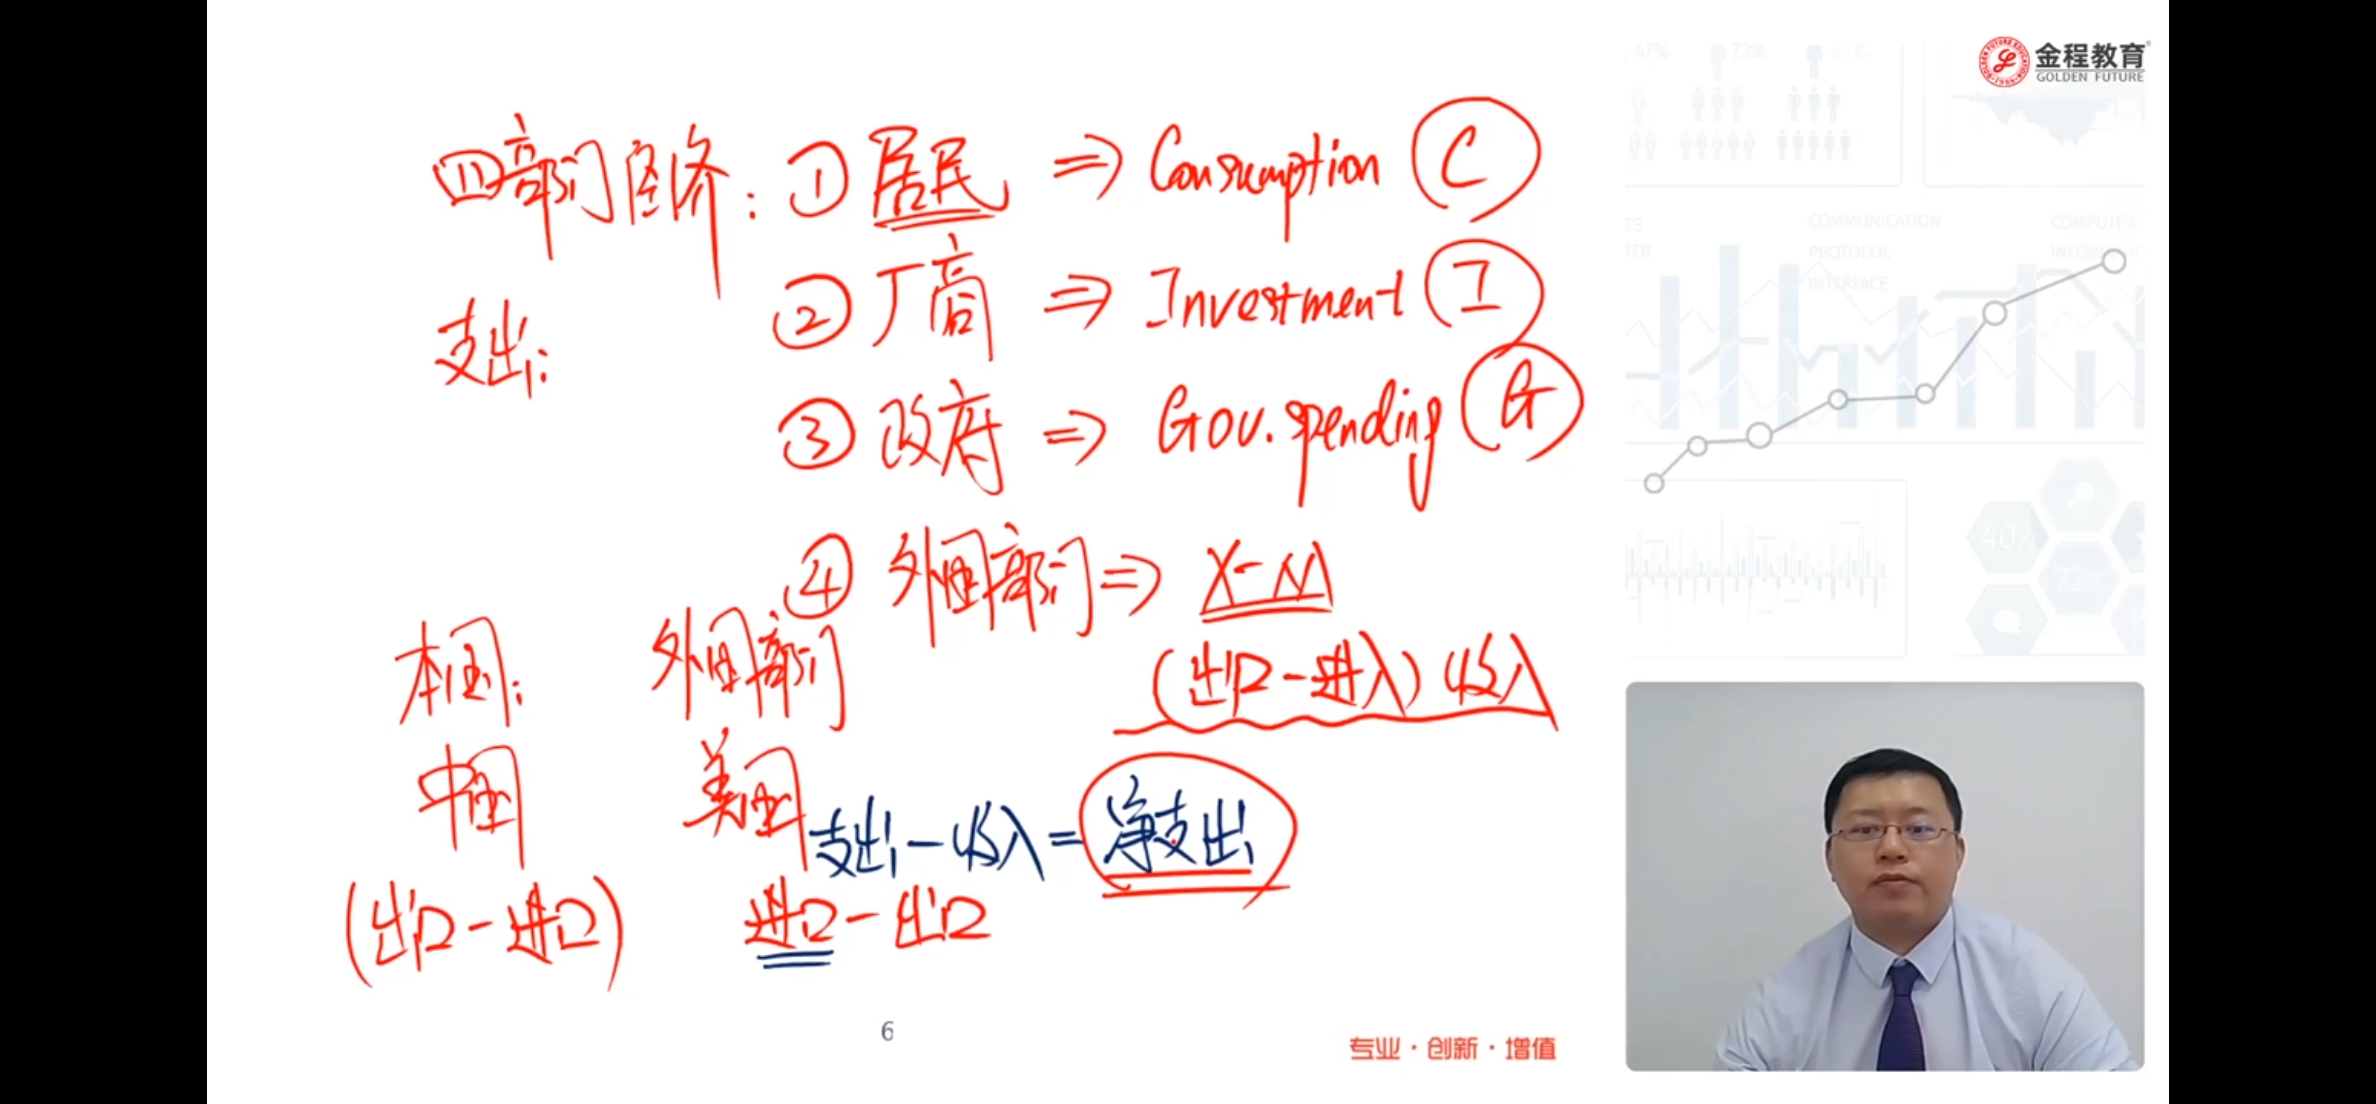 金程教育
GOLDEN FUTURE
67%
73%
四部门经济：① 居民 ⇒ Consumption C
② 厂商 ⇒ Investment I
支出：
③ 政府 ⇒ Gov. spending G
④ 外国部门 ⇒ X-M
(出口-进入)收入
本国：
外国部门
中国
美国
支出-收入=净支出
(出口-进口)
进口-出口
COMMUNICATION
PROTOCOL
INTERFACE
COMPUTER
40%
6
专业·创新·增值